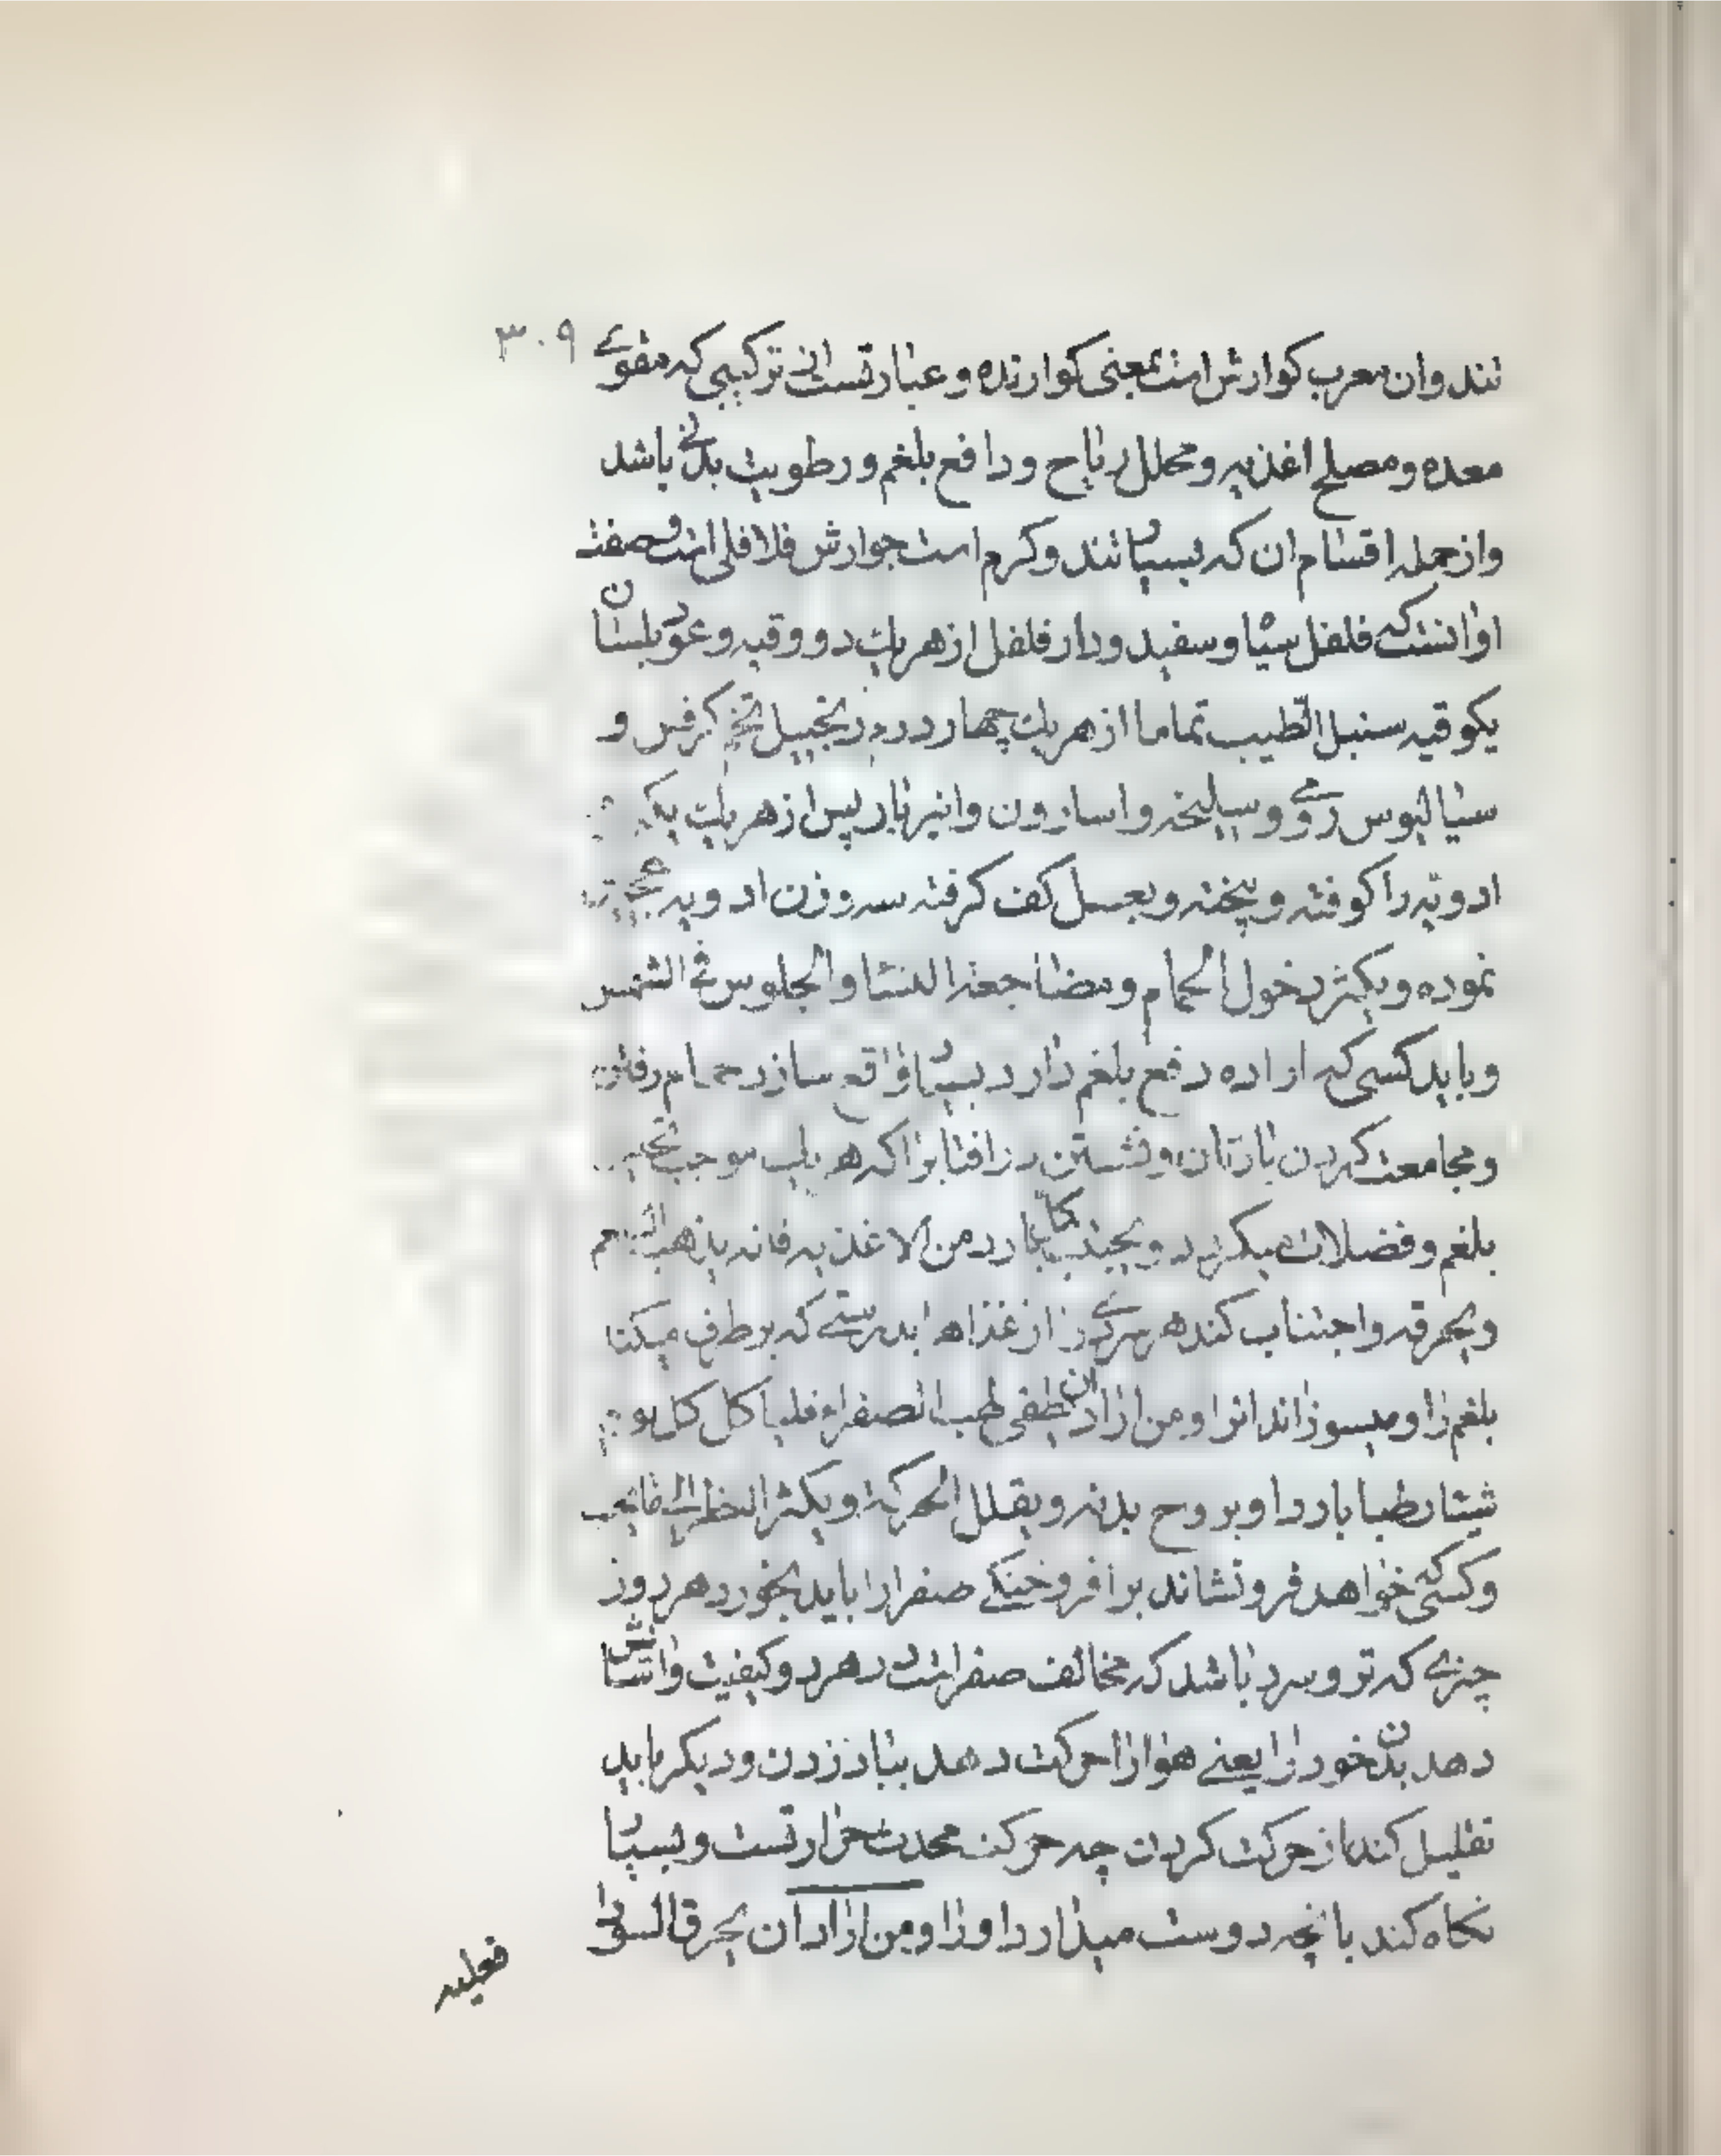 ۳۰۹
تند وان معرب کوارش است بمعنی کوارنده و عبارتست از ترکیبی که مقوی
معده ومصلح اغذیه ومحلل ریاح ودافع بلغم ورطوبت بدنی باشد
وازجمله اقسام ان که بسیار تند وکرم است جوارش فلافلی است وصفت
او انستکه فلفل سیاه وسفید ودار فلفل ازهریک دو وقیه وعود بلسان
یکوقیه سنبل الطیب تماما ازهریک چهار درم زنجبیل تخم کرفس و
سیالیوس رومی وسلیخه واسارون وانیز باریس ازهریک
ادویه را کوفته وبیخته وبعسل کف کرفته سه وزن ادویه
نموده ویکثر دخول الحمام ومضاجعة النسا والجلوس فی الشمس
وباید کسی که اراده دفع بلغم دارد بسیار واقع سازد حمام رفتن
ومجامعت کردن با زنان ونشستن در افتاب را که هریک موجب
بلغم وفضلات میکردد ویجتنب کل بارد من الاغذیه فانه یذهب البلغم
ویحرقه واجتناب کند هر سردی را از غذاها بدرستی که برطرف میکند
بلغم را ومیسوزاند انرا ومن اراد ان یطفی لهب الصفراء فلیاکل کل یوم
شیئا رطبا باردا ویروح بدنه ویقلل الحرکة ویکثر النظر الی ما یحب
وکسی که خواهد فرو نشاند برافروختکی صفرا را باید بخورد هر روز
چیزی که تر وسرد باشد که مخالف صفراست در هردو کیفیت واسایش
دهد بدن خود را یعنی هوا را حرکت دهد بباد زدن ودیکر باید
تقلیل کند از حرکت کردن چه حرکت محدث حرارتست وبسیار
نکاه کند بانچه دوست میدارد او را ومن اراد ان یحرق السودا
فعلیه